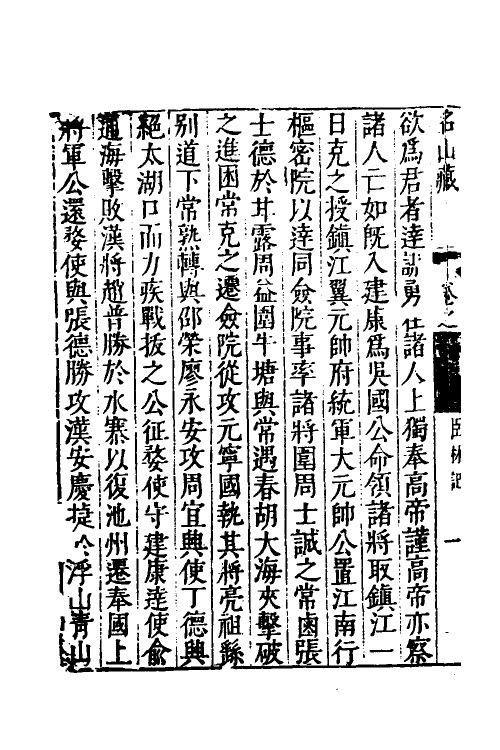 名山藏 卷之 臣林記 一
欲爲君者達謀勇在諸人上獨奉高帝謹高帝亦察
諸人亡如既入建康爲吳國公命領諸將取鎮江一
日克之授鎮江翼元帥府統軍大元帥公置江南行
樞密院以達同僉院事率諸將圍周士誠之常鹵張
士德於甘露周益圍牛塘與常遇春胡大海夾擊破
之進困常克之遷僉院從攻元寧國執其將亮祖繇
别道下常熟轉與邵榮廖永安攻周宜興使丁德興
絕太湖口而力疾戰拔之公征婺使守建康達使俞
通海擊敗漢將趙普勝於水寨以復池州遷奉國上
將軍公還婺使與張德勝攻漢安慶捷 浮山青山